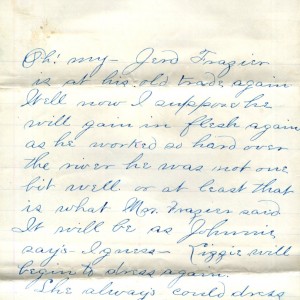 Oh! my - Jerd Frazier
is at his old trade again
Well now I suppose he
will gain in flesh again
as he worked so hard over
the river he was not one
bit well. or at least that
is what Mrs. Frazier said
It will be as Johnnie
says - I guess - Lizzie will
begin to dress again.
She always could dress